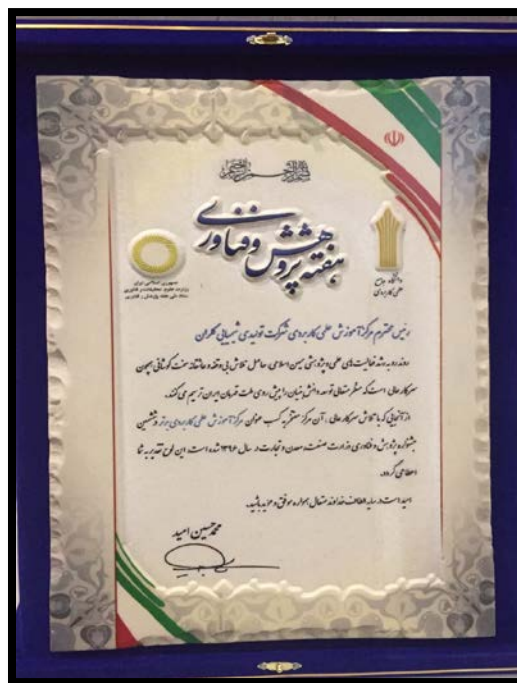 بسم الله الرحمن الرحیم
هفته پژوهش و فناوری
جمهوری اسلامی ایران
وزارت علوم، تحقیقات و فناوری
ستاد ملی هفته پژوهش و فناوری
دانشگاه جامع
علمی کاربردی
رئیس محترم مرکز آموزش علمی کاربردی شرکت تولیدی شیمیایی کلران
روند رو به رشد فعالیت های علمی و پژوهشی میهن اسلامی، حاصل تلاش بی وقفه و عاشقانه سخت کوشانی همچون
سرکار عالی است که منظر متعالی توسعه دانش بنیان را پیش روی ملت قهرمان ایران ترسیم می کنند.
از آنجایی که با تلاش سرکار عالی، آن مرکز مفتخر به کسب عنوان مرکز آموزش علمی کاربردی برتر در ششمین
جشنواره پژوهش و فناوری وزارت صنعت، معدن و تجارت در سال ۱۳۹۶ شده است، این لوح تقدیر به شما
اعطا می گردد.
امید است در سایه الطاف خداوند متعال همواره موفق و مؤید باشید.
محمدحسین امید